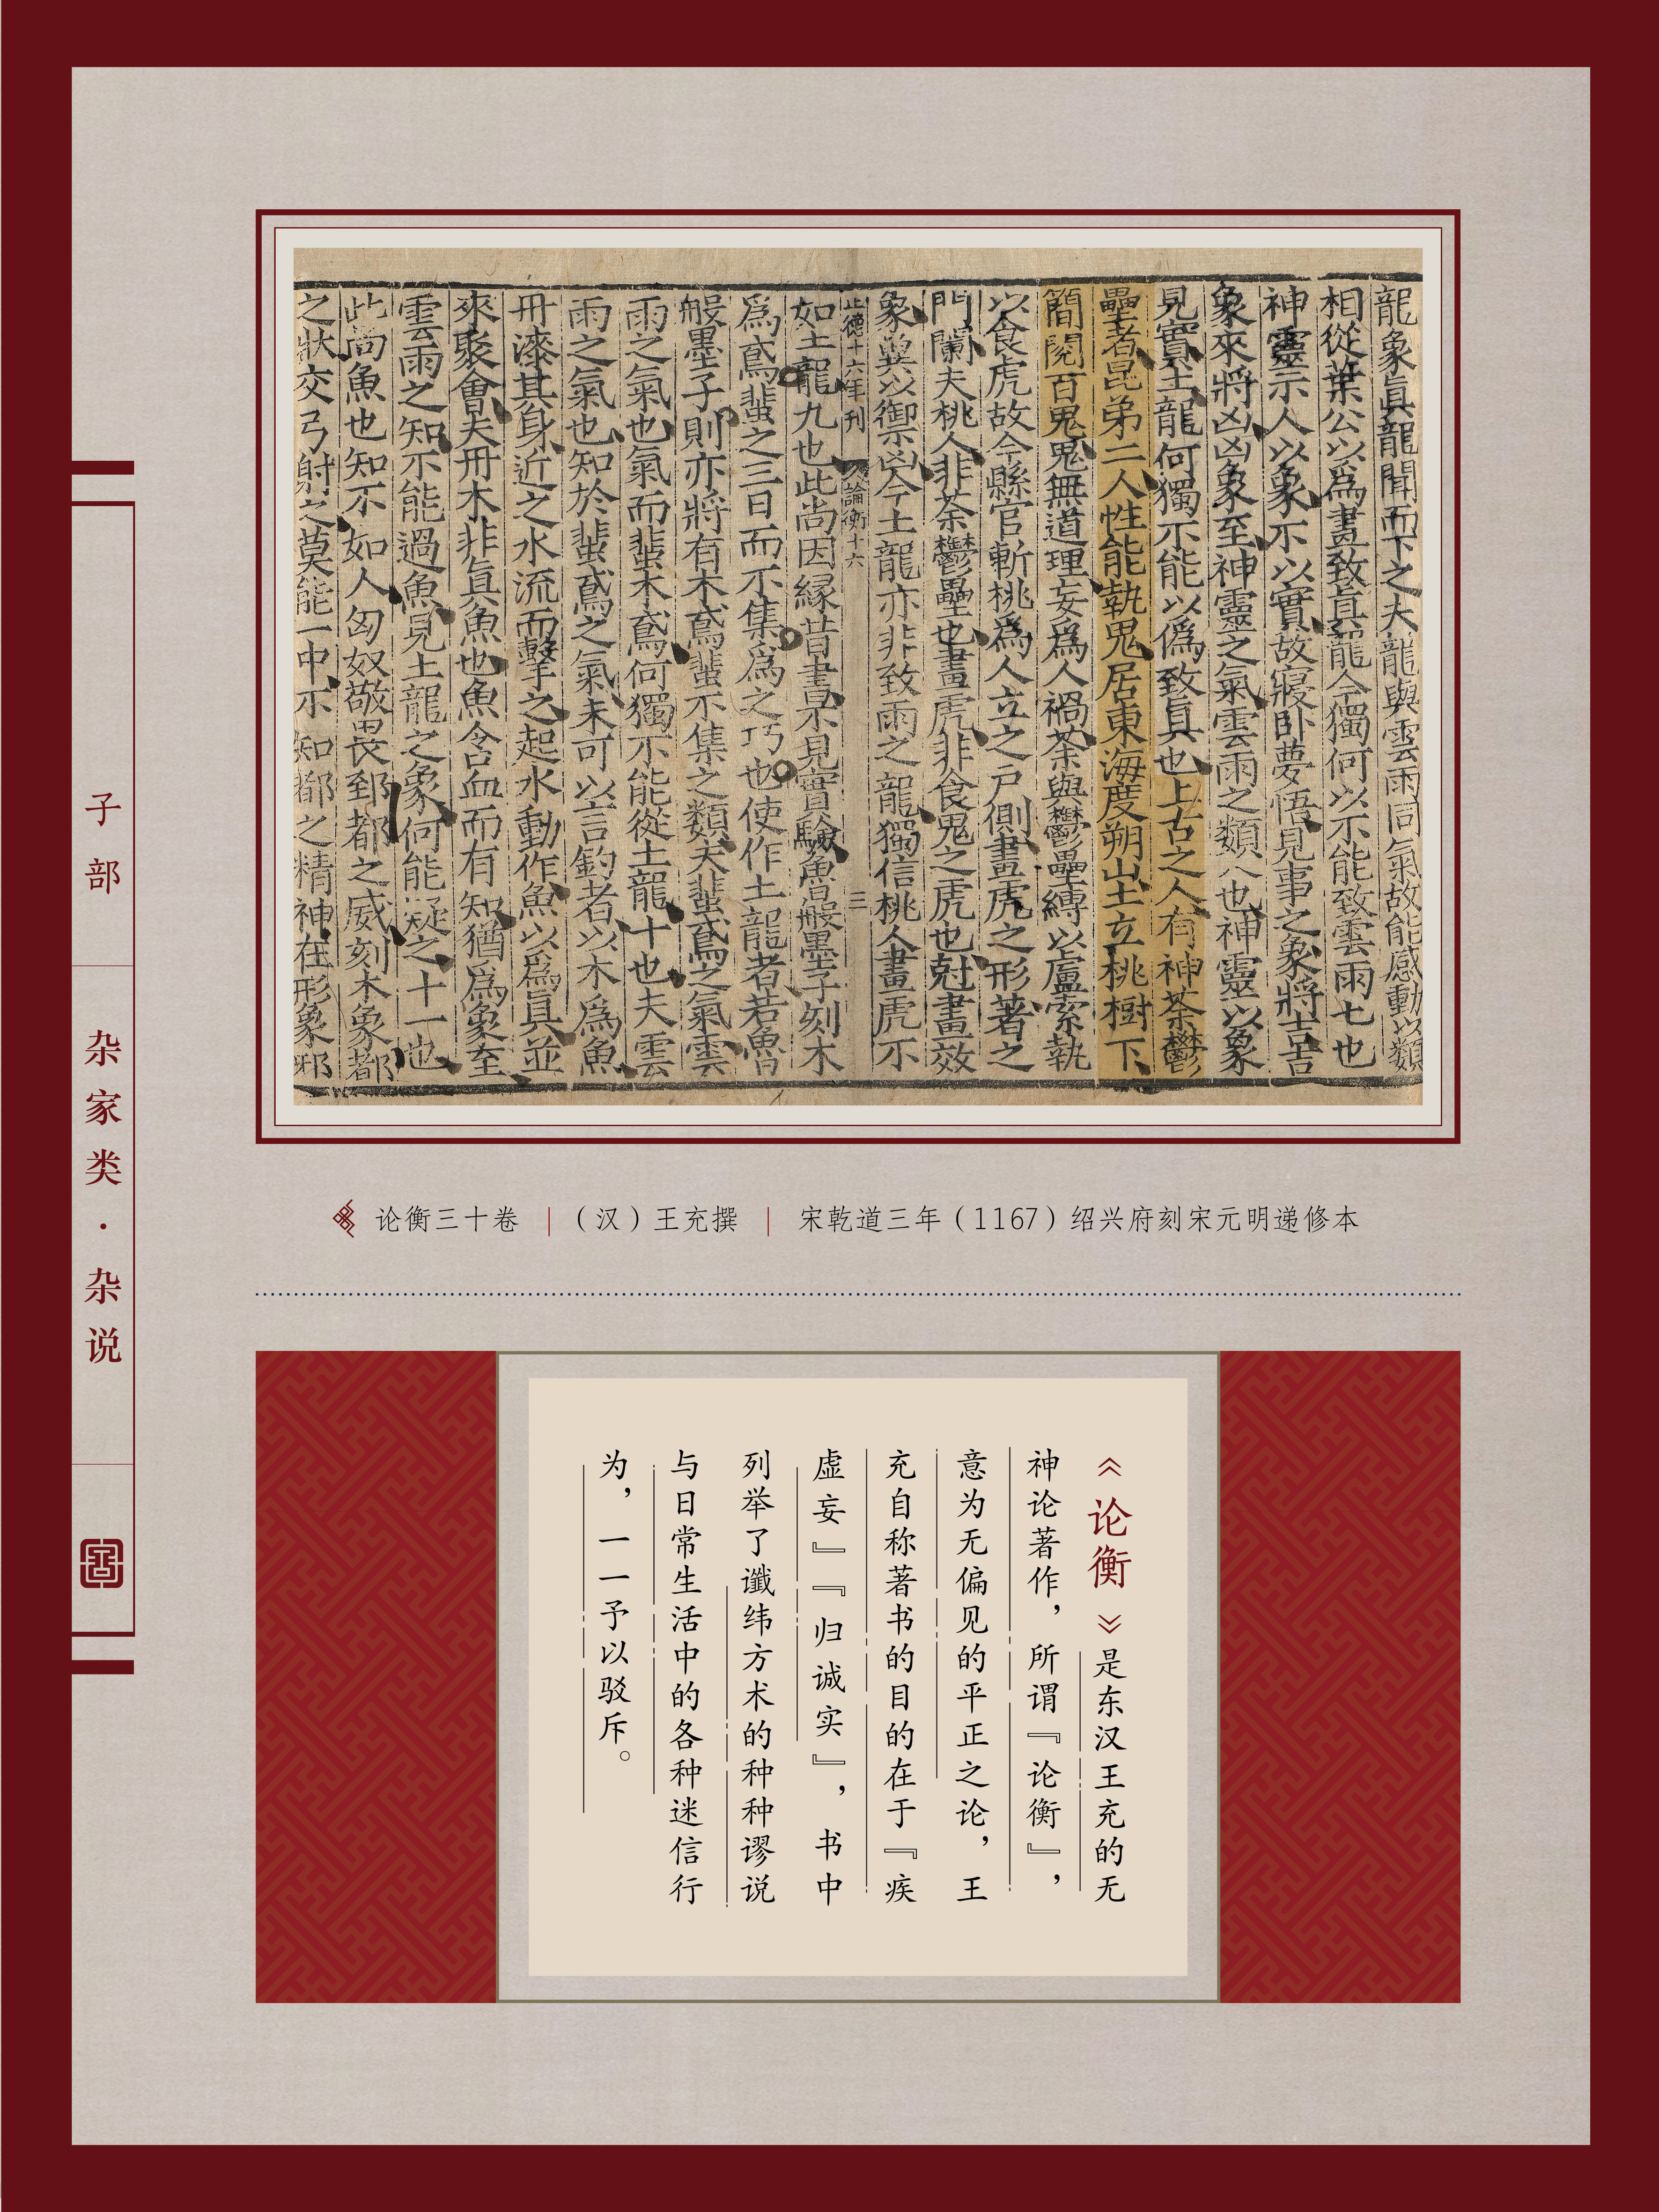 龍象眞龍聞而下之夫龍與雲雨同氣故能感動以類
相從葉公以爲畫致眞龍今獨何以不能致雲雨七也
神靈示人以象不以實故寢卧夢悟見事之象將吉吉
象來將凶凶象至神靈之氣雲雨之類八也神靈以象
見實土龍何獨不能以僞致眞也上古之人有神荼鬱
壘者昆弟二人性能執鬼居東海度朔山上立桃樹下
簡閱百鬼鬼無道理妄爲人禍荼與鬱壘縛以盧索執
以食虎故今縣官斬桃爲人立之戶側畫虎之形著之
門闌夫桃人非荼鬱壘也畫虎非食鬼之虎也尅畫效
象兾以禦凶今土龍亦非致雨之龍獨信桃人畫虎不
正德十六年刊 論衡十六 三
如土龍九也此尚因緣昔書不見實驗魯般墨子刻木
爲鳶蜚之三日而不集爲之巧也使作土龍者若魯
般墨子則亦將有木鳶蜚不集之類夫蜚鳶之氣雲
雨之氣也氣而蜚木鳶何獨不能從土龍十也夫雲
雨之氣也知於蜚鳶之氣未可以言釣者以木爲魚
丹漆其身近之水流而擊之起水動作魚以爲眞並
來聚會夫丹木非眞魚也魚含血而有知猶爲象至
雲雨之知不能過魚見土龍之象何能疑之十一也
此尚魚也知不如人匈奴敬畏郅都之威刻木象都
之狀交弓射之莫能一中不知都之精神在形象邪
论衡三十卷 | （汉）王充撰 | 宋乾道三年（1167）绍兴府刻宋元明递修本
《论衡》是东汉王充的无
神论著作，所谓『论衡』，
意为无偏见的平正之论，王
充自称著书的目的在于『疾
虚妄』『归诚实』，书中
列举了谶纬方术的种种谬说
与日常生活中的各种迷信行
为，一一予以驳斥。
子部
杂家类·杂说